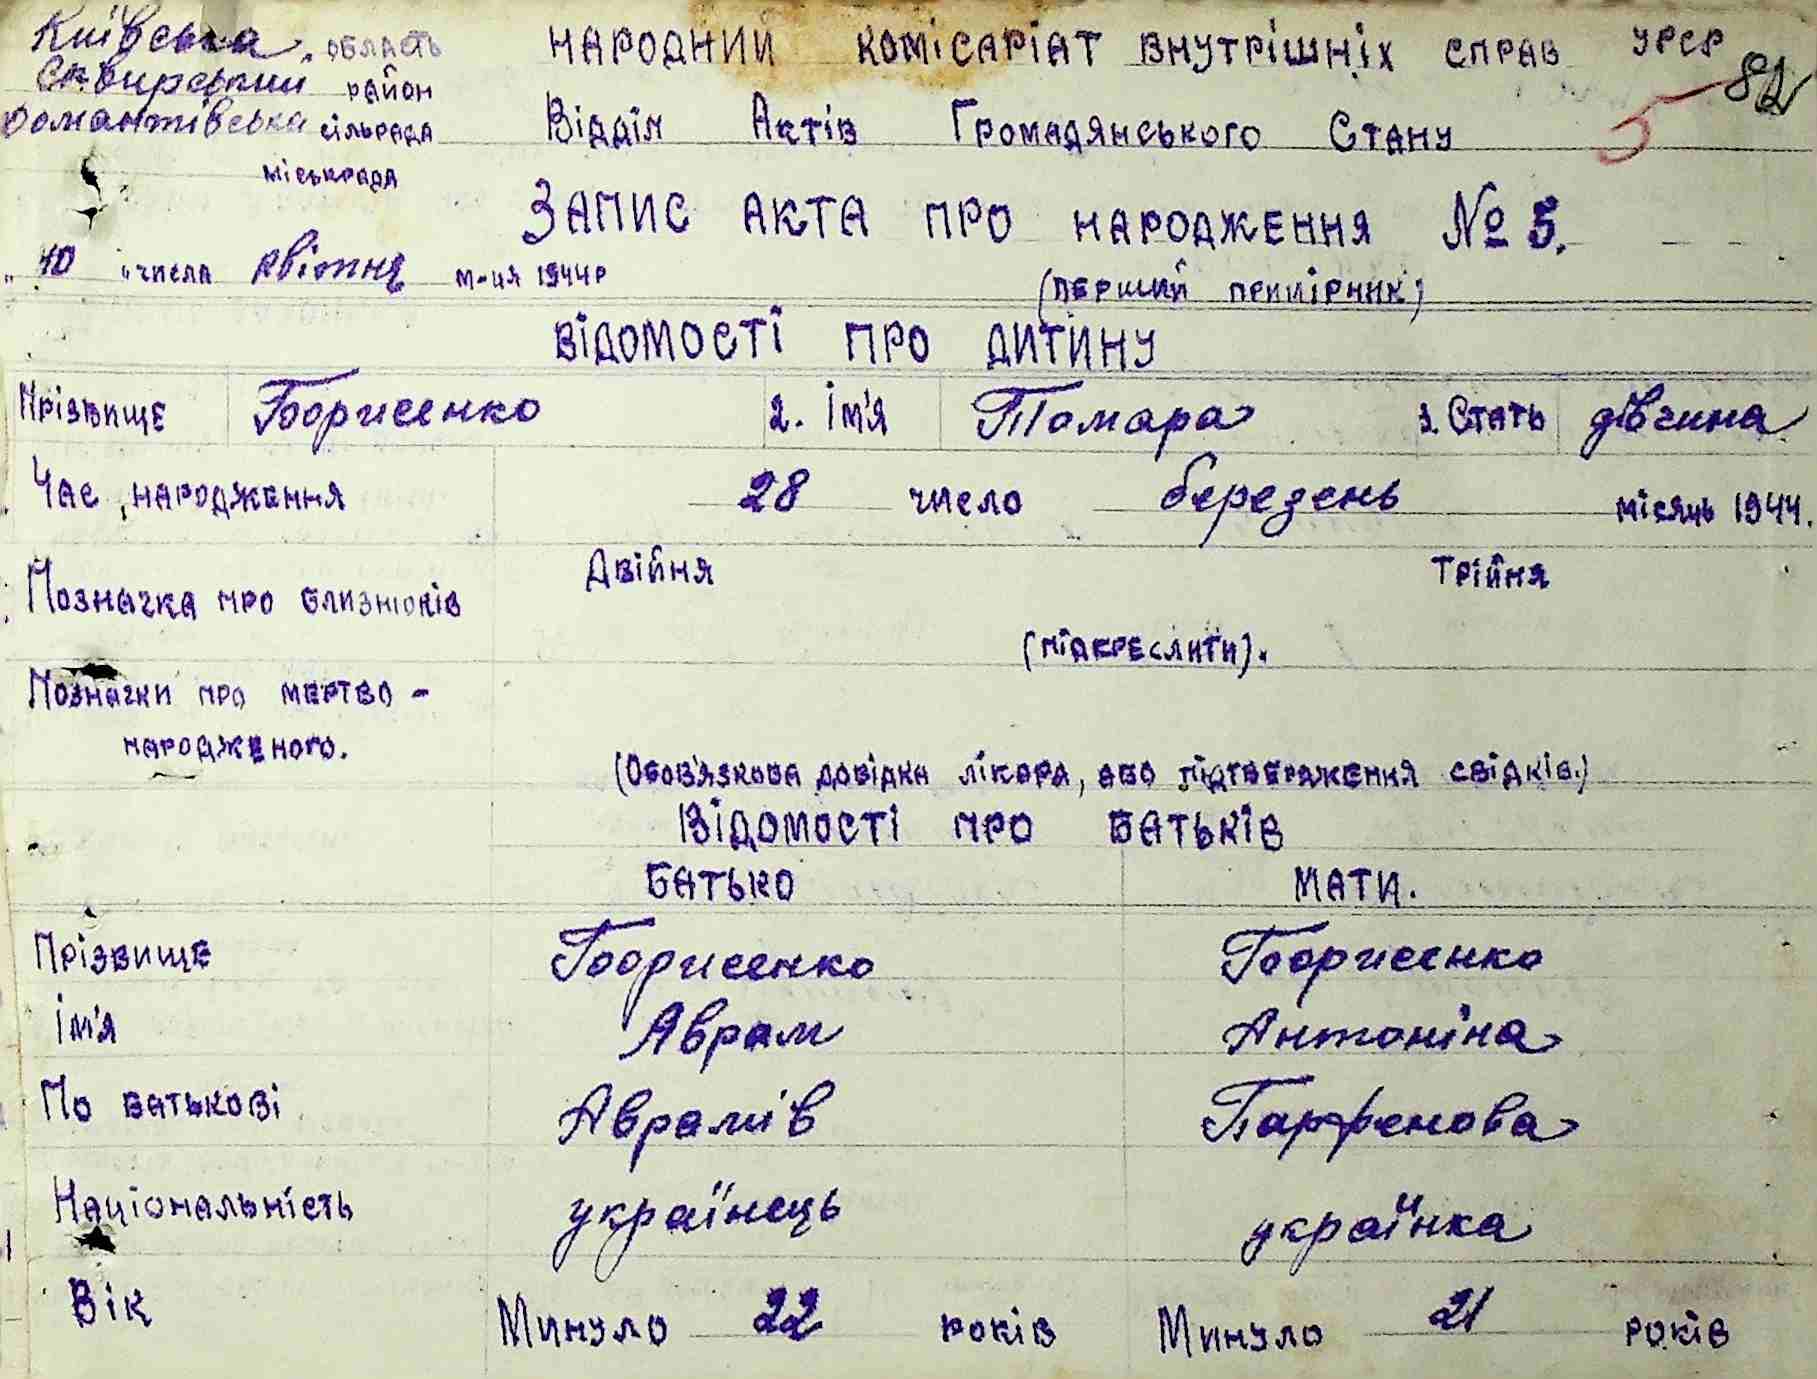 Київська область
Сквирський район
Домантівська сільрада
міськрада
НАРОДНИЙ КОМІСАРІАТ ВНУТРІШНІХ СПРАВ УРСР
82
5
Відділ Актів Громадянського Стану
ЗАПИС АКТА ПРО НАРОДЖЕННЯ № 5.
„10" числа квітня м-ця 1944 р
(перший примірник)
ВІДОМОСТІ ПРО ДИТИНУ
Прізвище Борисенко 2. Ім'я Тамара 3. Стать дівчина
Час народження 28 число березень місяць 1944.
Позначка про близнюків Двійня Трійня
(підкреслити).
Позначки про мертво-
народженого.
(Обов'язкова довідка лікаря, або підтвердження свідків.)
Відомості про батьків
БАТЬКО МАТИ.
Прізвище Борисенко Борисенко
Ім'я Аврам Антоніна
По батькові Аврамів Парфенова
Національність українець українка
Вік Минуло 22 років Минуло 21 років